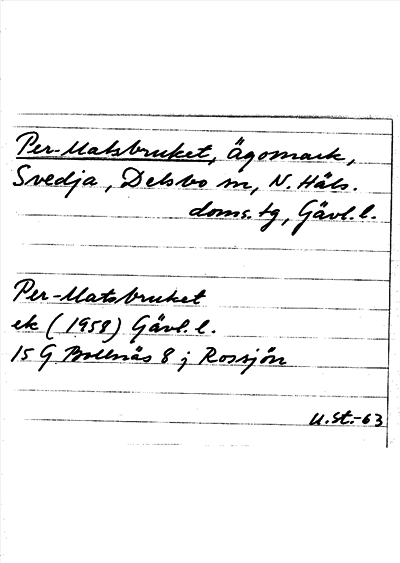 Per-Matsbruket, Ägomark,
Svedja, Delsbo sn, N. Häls.
doms. tg, Gävl. l.
Per-Matsbruket
ek (1958) Gävl. l.
15 G Bollnäs 8 j Rossjön
U.St.-63